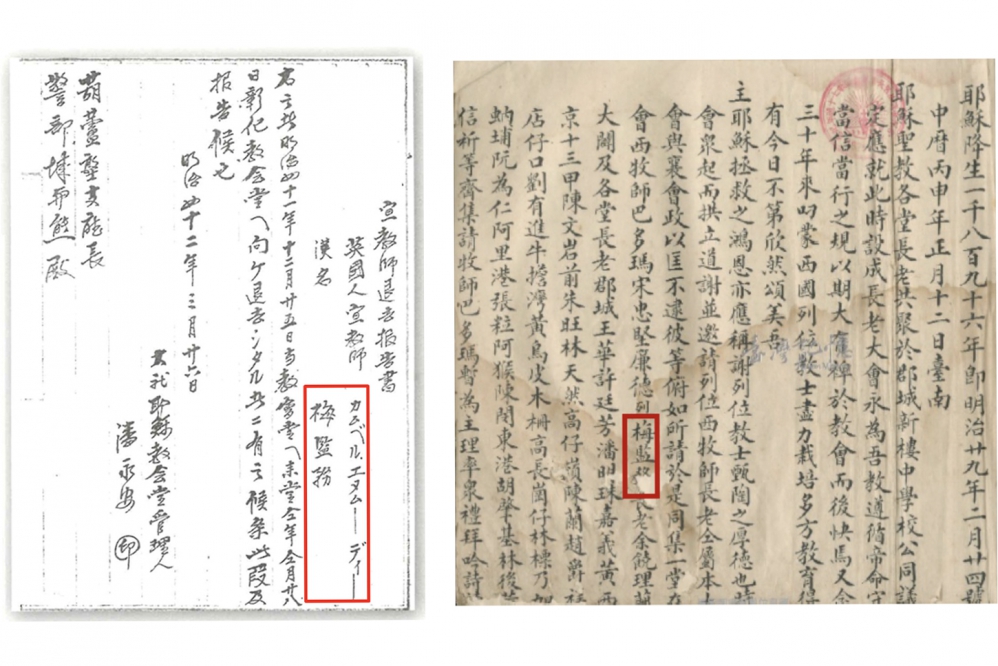 宣教師退去報告書
英國人宣教師 カムベル、エタムーーデイーー
漢名 梅監務
右之者明治四十一年十二月廿五日當教會堂へ来堂仝年仝月廿八
日彰化教會堂へ向ケ退去シタル者ニ有之候条此段及
報告候也
明治四十二年三月廿六日
大社耶穌教會堂管理人
潘永安 印
葫蘆墩支廳長
警部 熊殿
耶穌降生一千八百九十六年即明治廿九年二月廿四號
中曆丙申年正月十二日臺南
耶穌聖教各堂長老共聚於郡城新樓中學校公同議
定應就此時設成長老大會永為吾教遵循帝命守
當信當行之規以期大有裨於教會而後快焉又念
三十年來叨蒙西國列位教士盡力栽培多方教育得
有今日不第欣然頌美吾
主耶穌拯救之鴻恩亦應稱謝列位教士甄陶之厚德也時
會眾起而拱立道謝並邀請列位西牧師長老仝屬本大
會與襄會政以匡不逮彼等俯如所請於是同集一堂在
會西牧師巴多瑪宋忠堅廉德列梅監務長老余饒理蘭
大闢及各堂長老郡城王華許廷芳潘明珠嘉義黃西
京十三甲陳文岩前朱旺林天然高仔嶺陳蘭趙爵
店仔口劉有進牛擔灣黃烏皮木柵高長崗仔林標乃
蚋埔阮為仁阿里港張粒阿猴陳閙東港胡肇基林後
信祈等齊集請牧師巴多瑪暫為主理率眾禮拜吟詩